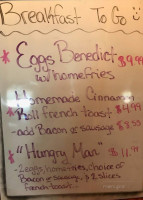 Breakfast To Go
* Eggs Benedict $9.99
w/ homefries
Homemade Cinnamon
* Roll french toast $4.99
- add Bacon or sausage $8.55
* "Hungry Man" $11.99
- 2 eggs, homefries, choice of
Bacon or sausage, & 2 slices
french toast